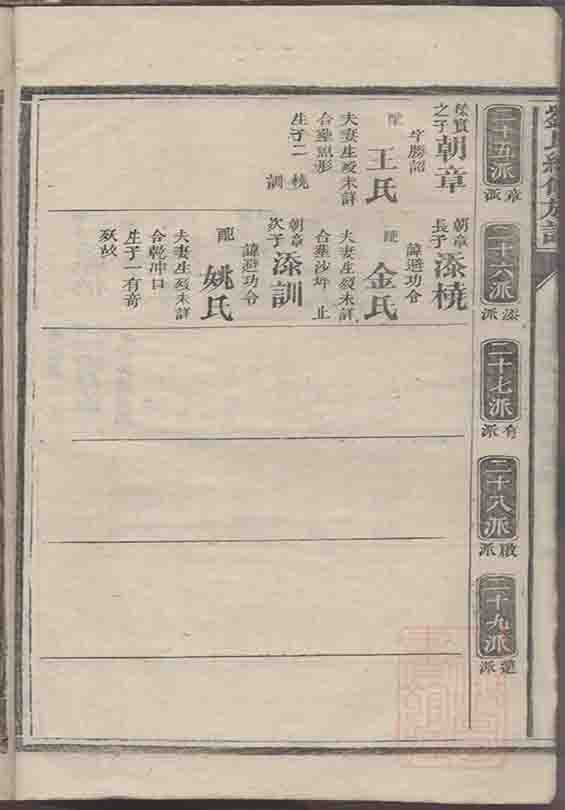 二十五派
章派
二十六派
添派
二十七派
有派
二十八派
啟派
二十九派
派
之子朝章
字勝詔
配王氏
夫妻生歿未詳
合葬
生子二 橈
訓
朝章
長子添橈
諱避功令
配金氏
夫妻生歿未詳
合葬沙坪 止
朝章
次子添訓
諱避功令
配姚氏
夫妻生歿未詳
合乾冲口
生子一有奇
歿故